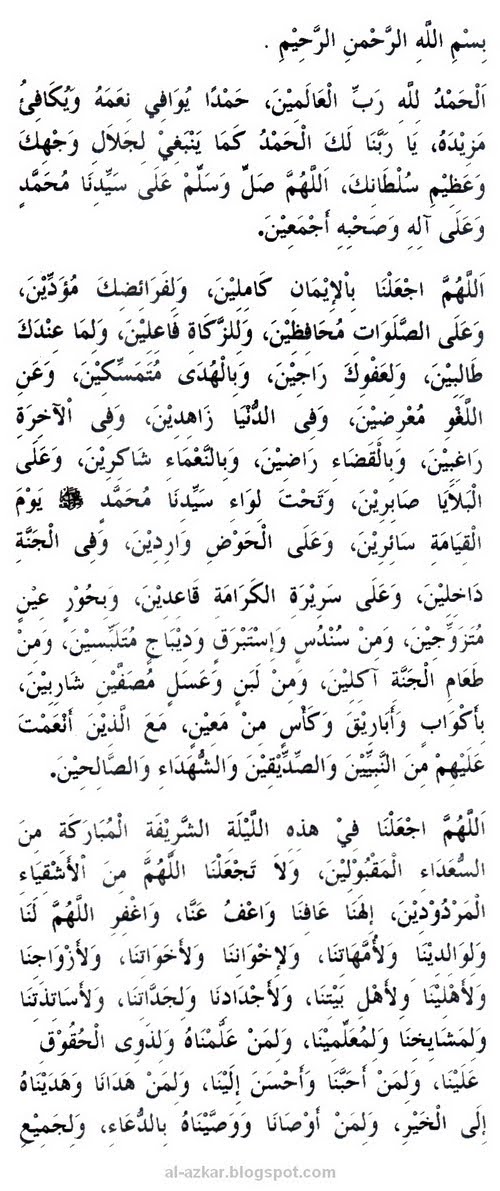 بِسْمِ اللَّهِ الرَّحْمنِ الرَّحِيْمِ .
اَلْحَمْدُ لِلَّهِ رَبِّ الْعَالَمِيْنَ، حَمْدًا يُوَافِي نِعَمَهُ وَيُكَافِئُ
مَزِيْدَهُ، يَا رَبَّنَا لَكَ الْحَمْدُ كَمَا يَنْبَغِيْ لِجَلَالِ وَجْهِكَ
وَعَظِيْمِ سُلْطَانِكَ، اَللَّهُمَّ صَلِّ وَسَلِّمْ عَلَى سَيِّدِنَا مُحَمَّدٍ
وَعَلَى آلِهِ وَصَحْبِهِ أَجْمَعِيْنَ.
اَللَّهُمَّ اجْعَلْنَا بِاْلإِيْمَانِ كَامِلِيْنَ، وَلِفَرَائِضِكَ مُؤَدِّيْنَ،
وَعَلَى الصَّلَوَاتِ مُحَافِظِيْنَ، وَلِلزَّكَاةِ فَاعِلِيْنَ، وَلِمَا عِنْدَكَ
طَالِبِيْنَ، وَلِعَفْوِكَ رَاجِيْنَ، وَبِالْهُدَى مُتَمَسِّكِيْنَ، وَعَنِ
اللَّغْوِ مُعْرِضِيْنَ، وَفِى الدُّنْيَا زَاهِدِيْنَ، وَفِى اْلآخِرَةِ
رَاغِبِيْنَ، وَبِالْقَضَاءِ رَاضِيْنَ، وَبِالنَّعْمَاءِ شَاكِرِيْنَ، وَعَلَى
الْبَلَايَا صَابِرِيْنَ، وَتَحْتَ لِوَاءِ سَيِّدِنَا مُحَمَّدٍ ﷺ يَوْمَ
الْقِيَامَةِ سَائِرِيْنَ، وَعَلَى الْحَوْضِ وَارِدِيْنَ، وَفِى الْجَنَّةِ
دَاخِلِيْنَ، وَعَلَى سَرِيْرَةِ الكَرَامَةِ قَاعِدِيْنَ، وَبِحُوْرٍ عِيْنٍ
مُتَزَوِّجِيْنَ، وَمِنْ سُنْدُسٍ وَإِسْتَبْرَقٍ وَدِيْبَاجٍ مُتَلَبِّسِيْنَ، وَمِنْ
طَعَامِ الْجَنَّةِ آكِلِيْنَ، وَمِنْ لَبَنٍ وَعَسَلٍ مُصَفَّيْنِ شَارِبِيْنَ،
بِأَكْوَابٍ وَأَبَارِيْقَ وَكَأْسٍ مِنْ مَعِيْنٍ، مَعَ الَّذِيْنَ أَنْعَمْتَ
عَلَيْهِمْ مِنَ النَّبِيِّيْنَ وَالصِّدِّيْقِيْنَ وَالشُّهَدَاءِ وَالصَّالِحِيْنَ.
اَللَّهُمَّ اجْعَلْنَا فِيْ هذِهِ اللَّيْلَةِ الشَّرِيْفَةِ الْمُبَارَكَةِ مِنَ
السُّعَدَاءِ الْمَقْبُوْلِيْنَ، وَلاَ تَجْعَلْنَا اللَّهُمَّ مِنَ اْلأَشْقِيَاءِ
الْمَرْدُوْدِيْنَ، إِلهَنَا عَافِنَا وَاعْفُ عَنَّا، وَاغْفِرِ اللَّهُمَّ لَنَا
وَلِوَالِدِيْنَا وَلأُمَّهَاتِنَا، وَلإِخْوَانِنَا وَلأَخَوَاتِنَا، وَلأَزْوَاجِنَا
وَلأَهْلِيْنَا وَلأَهْلِ بَيْتِنَا، وَلأَجْدَادِنَا وَلِجَدَّاتِنَا، وَلأَسَاتِذَتِنَا
وَلِمَشَايِخِنَا وَلِمُعَلِّمِيْنَا، وَلِمَنْ عَلَّمْنَاهُ وَلِذَوِى الْحُقُوْقِ
عَلَيْنَا، وَلِمَنْ أَحَبَّنَا وَأَحْسَنَ إِلَيْنَا، وَلِمَنْ هَدَانَا وَهَدَيْنَاهُ
إِلَى الْخَيْرِ، وَلِمَنْ أَوْصَانَا وَوَصَّيْنَاهُ بِالدُّعَاءِ، وَلِجَمِيْعِ
al-azkar.blogspot.com